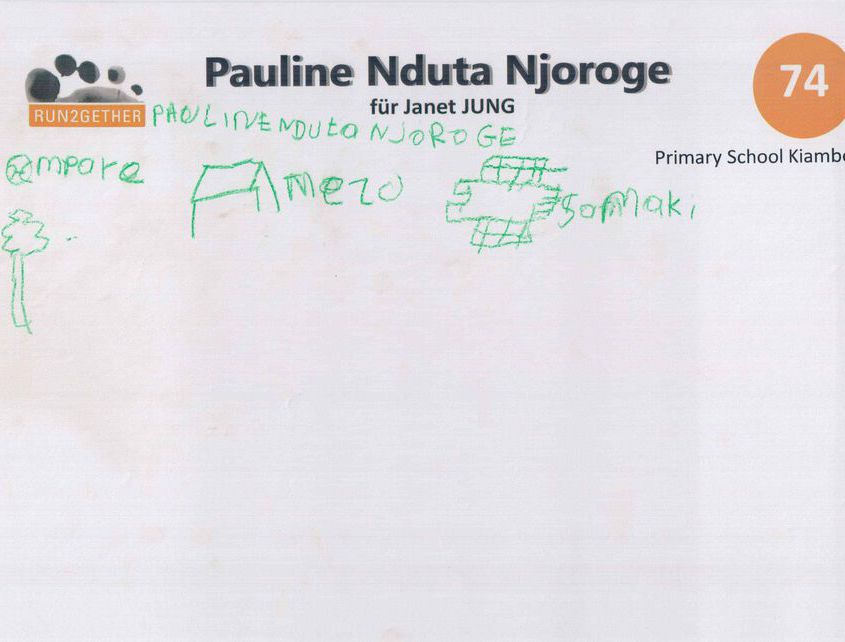 Pauline Nduta Njoroge
74
RUN2GETHER
für Janet JUNG
PAULINENDUtaNJOROGE
Primary School Kiambo
mpare
Mezo
Sofmaki